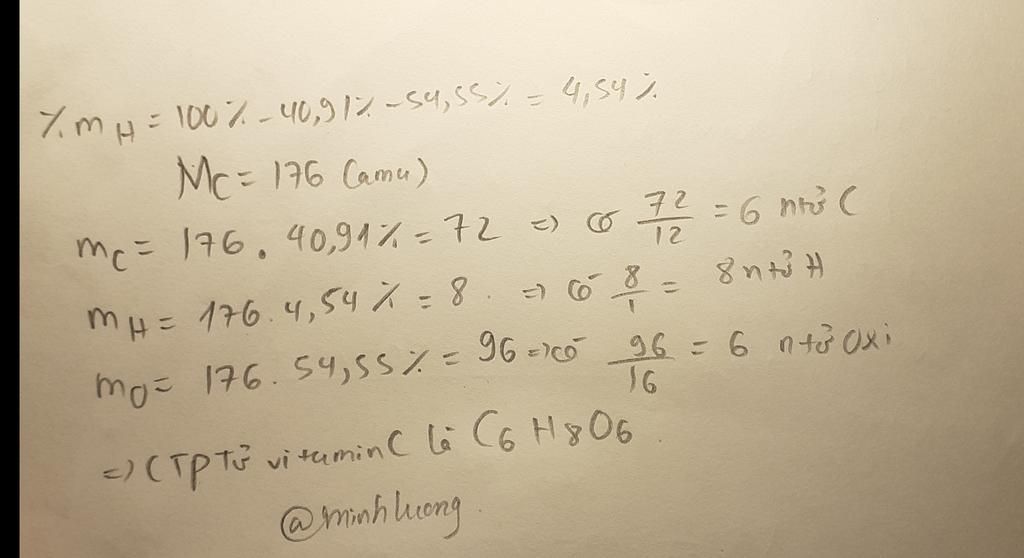 % m H = 100% - 40,91% - 54,55% = 4,54%
Mc = 176 (amu)
mc = 176 . 40,91% = 72 => có 72/12 = 6 ntử C
mH = 176. 4,54% = 8 . => có 8/1 = 8 ntử H
mO = 176. 54,55% = 96 => có 96/16 = 6 ntử Oxi
=> CTPTử vitamin C là C6H8O6.
@minhluong.